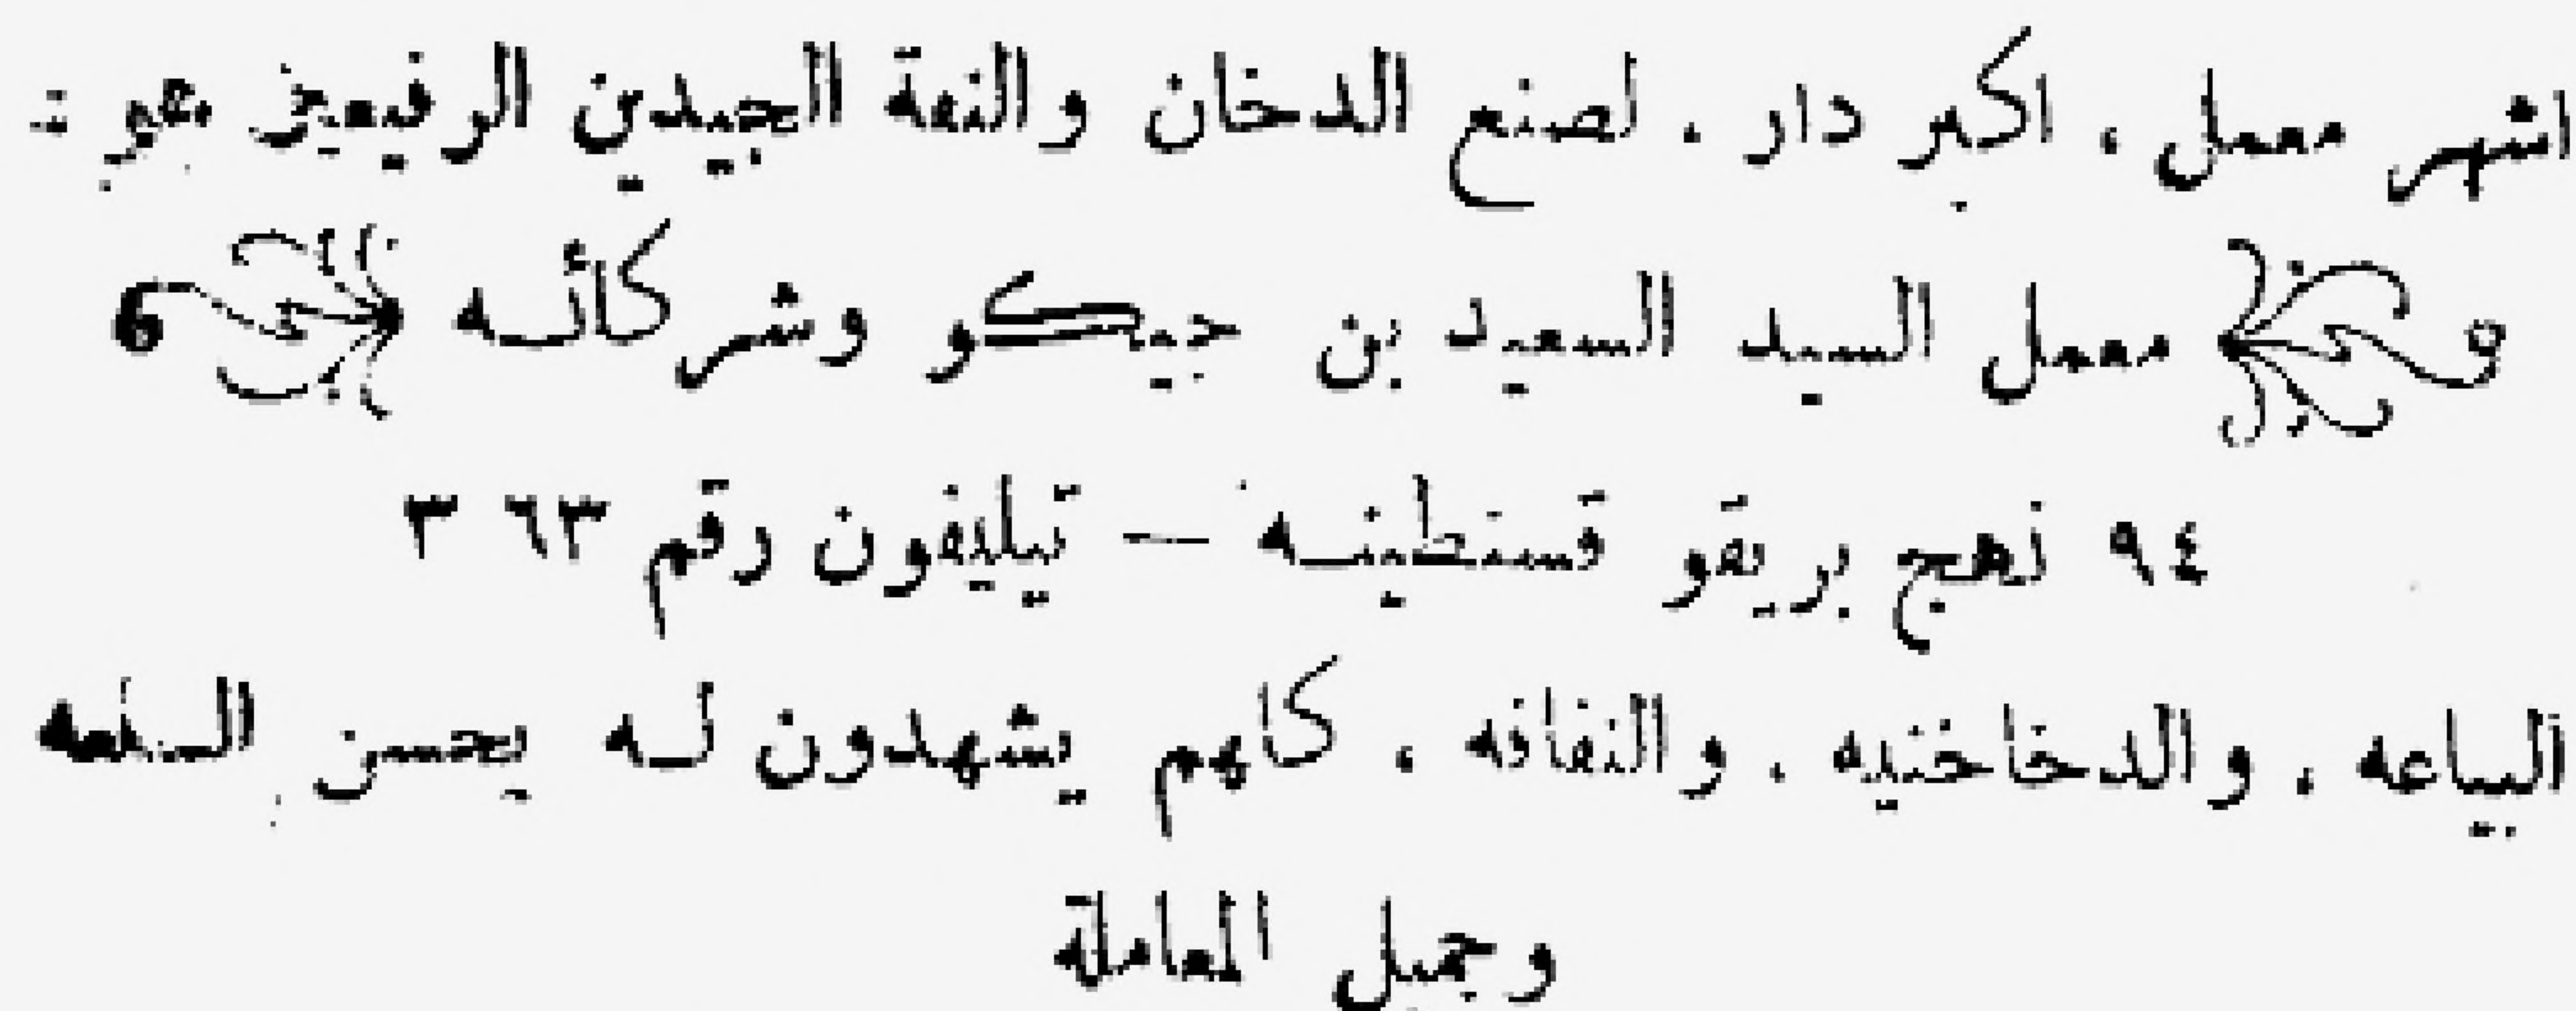 اشهر معمل ، اكبر دار . لصنع الدخان والنفة الجيدين الرفيعين هو :
معمل السيد السعيد بن جيكو وشركائه
٩٤ نهج بريقو قسنطينه — تيليفون رقم ٣ ٦٣
البياعه . والدخاخنيه . والنفافه ، كلهم يشهدون له بحسن السلعه
وجميل المعاملة